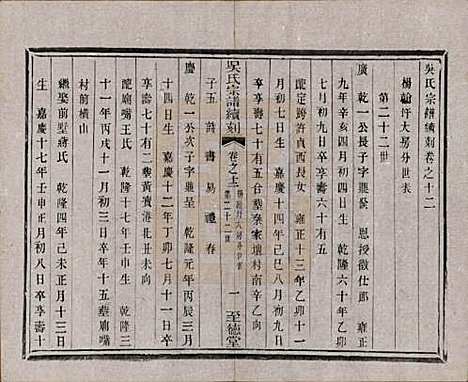 吳氏宗譜續刻卷之十二
楊翰圩大房分世表
第二十二世
廣 乾一公長子字鳳 恩授徵仕郎 雍正
九年辛亥四月初四日生 乾隆六十年乙卯
七月初九日卒享壽六十有五
配定跨許貞西長女 雍正十三年乙卯十一
月初七日生 嘉慶十四年己巳八月初九日
卒享壽七十有五合葬秦家壇村南辛乙向
子五 詩 書 易 禮 春
吳氏宗譜續刻
卷之十二
第二十二世
一
至德堂
慶 乾一公次子字 乾隆元年丙辰三月
十四日生 嘉慶十二年丁卯七月十一日卒
享壽七十有二葬黃寶港北丑未向
配廟嘴王氏 乾隆十七年壬申生 乾隆三
十一年丙戌十一月初八日卒年十五葬廟嘴
村前橫山
繼娶前墅蔣氏 乾隆四年己未正月十三日
生 嘉慶十七年壬申正月初八日卒享壽七十